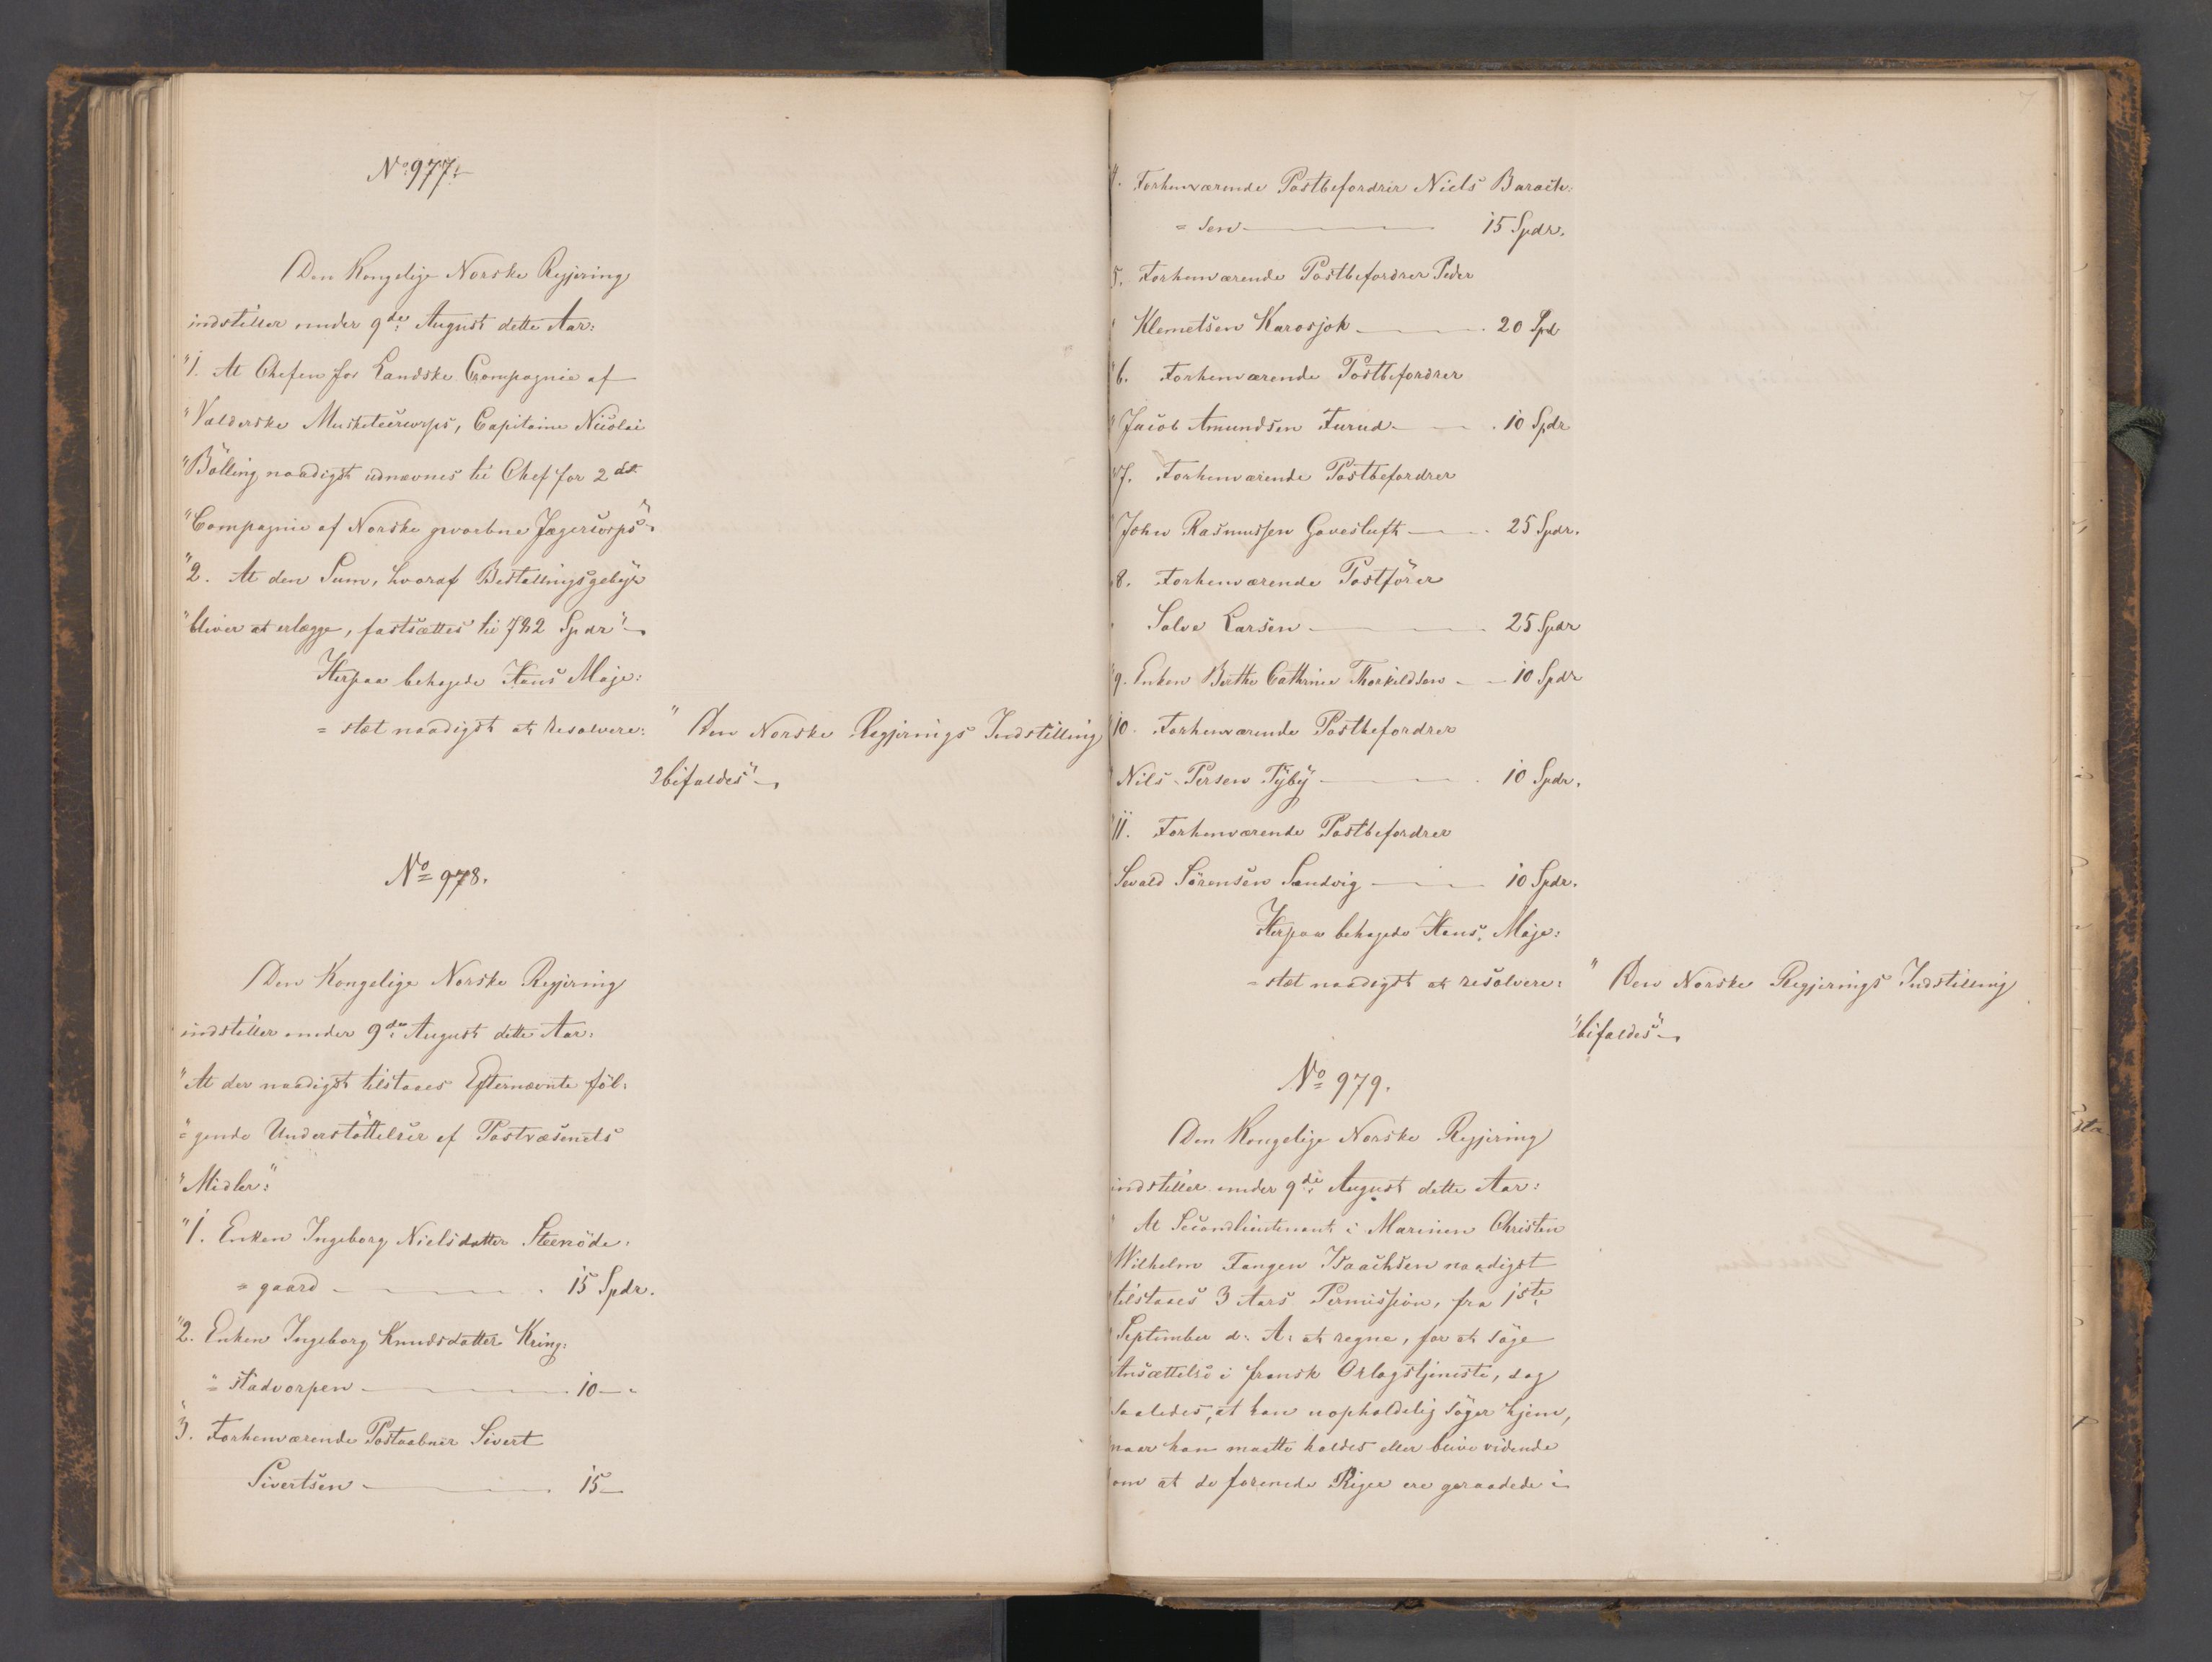 No 977.
Den Kongelige Norske Regjering
indstiller under 9de August dette Aar:
"1. At Chefen for Landske Compagnie af
"Valderske Musketeercorps, Capitaine Nicolai
"Bölling naadigst udnævnes til Chef for 2det
"Compagnie af Norske gevorbne Jægercorps"
"2. At den Sum, hvoraf Bestallingsgebyr
"bliver at erlægge, fastsættes til 782 Spdr"
Herpaa behagede Hans Maje:
= stæt naadigst at resolvere:
" Den Norske Regjerings Indstilling
"bifaldes"
No 978.
Den Kongelige Norske Regjering
indstiller under 9de August dette Aar:
"At der naadigst tilstaaes Efternævnte föl:
"= gende Understöttelser af Postvæsenets
"Midler:"
"1. Enken Ingeborg Nielsdatter Steenöde:
= gaard 15 Spdr.
"2. Enken Ingeborg Knudsdatter Kring:
"= stadvorpen 10 — "
3. Forhenværende Postaabner Sivert
Sivertsen 15 —
4. Forhenværende Postbefordrer Niels Baroite:
= sen 15 Spdr.
5. Forhenværende Postbefordrer Peder
Klemetsen Karosjok 20 Spd
"6. Forhenværende Postbefordrer
"Jacob Amundsen Furud 10 Spdr
"7. Forhenværende Postbefordrer
John Rasmussen Gavesluft 25 Spdr.
"8. Forhenværende Postförer
Salve Larsen 25 Spdr
"9. Enken Berthe Cathrine Thorkildsen 10 Spdr
"10. Forhenværende Postbefordrer
Nils Persen Tyby 10 Spdr.
"11. Forhenværende Postbefordrer
Sevald Sörensen Sandvig 10 Spdr.
Herpaa behagede Hans Maje:
= stæt naadigst at resolvere:
" Den Norske Regjerings Indstilling
"bifaldes"
No 979.
Den Kongelige Norske Regjering
indstiller under 9de August dette Aar:
At Secondlieutenant i Marinen Christen
Wilhelm Fangen Isaachsen naadigst
tilstaaes 3 Aars Permission, fra 1ste
September d: A: at regne, for at söge
Ansættelse i fransk Orlogstjeneste, dog
saaledes, at han uopholdelig söger hjem,
naar han maatte kaldes eller blive vidende
om at de forenede Riger ere geraadede i